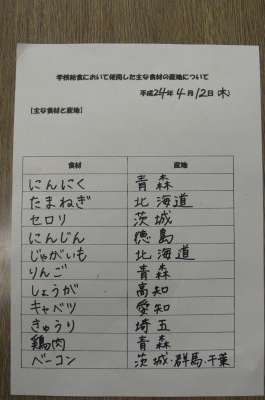 学校給食において使用した主な食材の産地について
平成24年4月12日(木)
【主な食材と産地】
食材 産地
にんにく 青森
たまねぎ 北海道
セロリ 茨城
にんじん 徳島
じゃがいも 北海道
りんご 青森
しょうが 高知
キャベツ 愛知
きゅうり 埼玉
鶏肉 青森
ベーコン 茨城・群馬・千葉